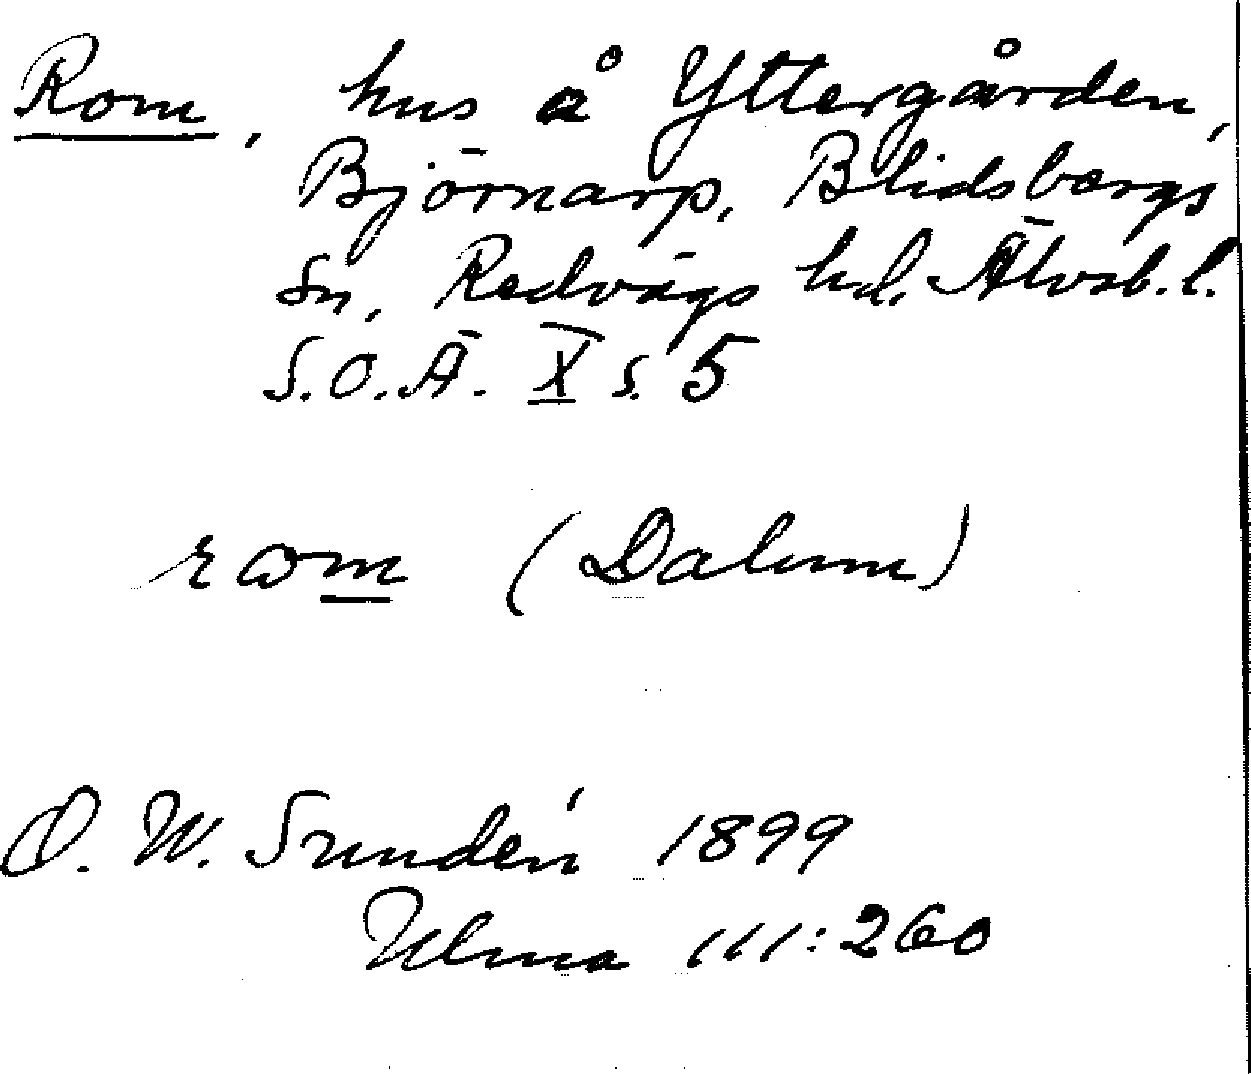 Rom, hus å Yttergården,
Björnarp, Blidsbergs
sn, Redvägs hd. Älvsb. l.
S.O.Ä. X s. 5
rωm (Dalum)
O. W. Sundén 1899
Ulma 111:260